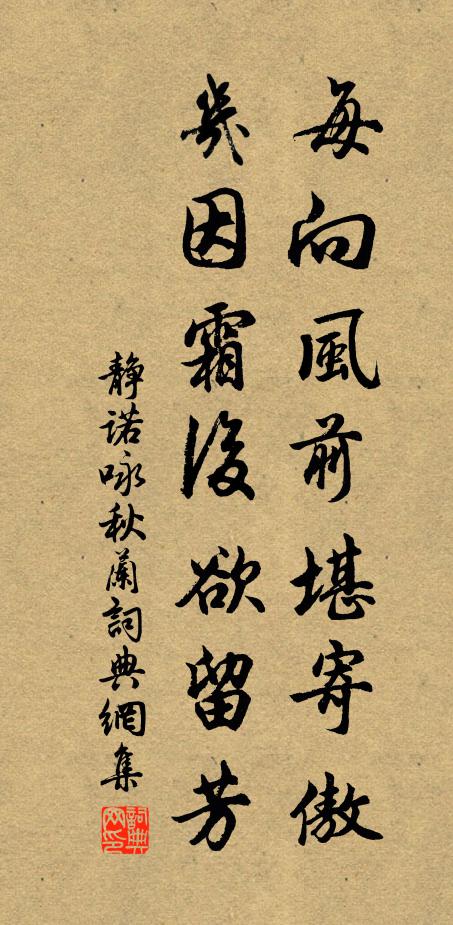 每向風前堪寄傲
幾因霜後欲留芳
靜諾咏秋蘭詞典網集
詞典
网印